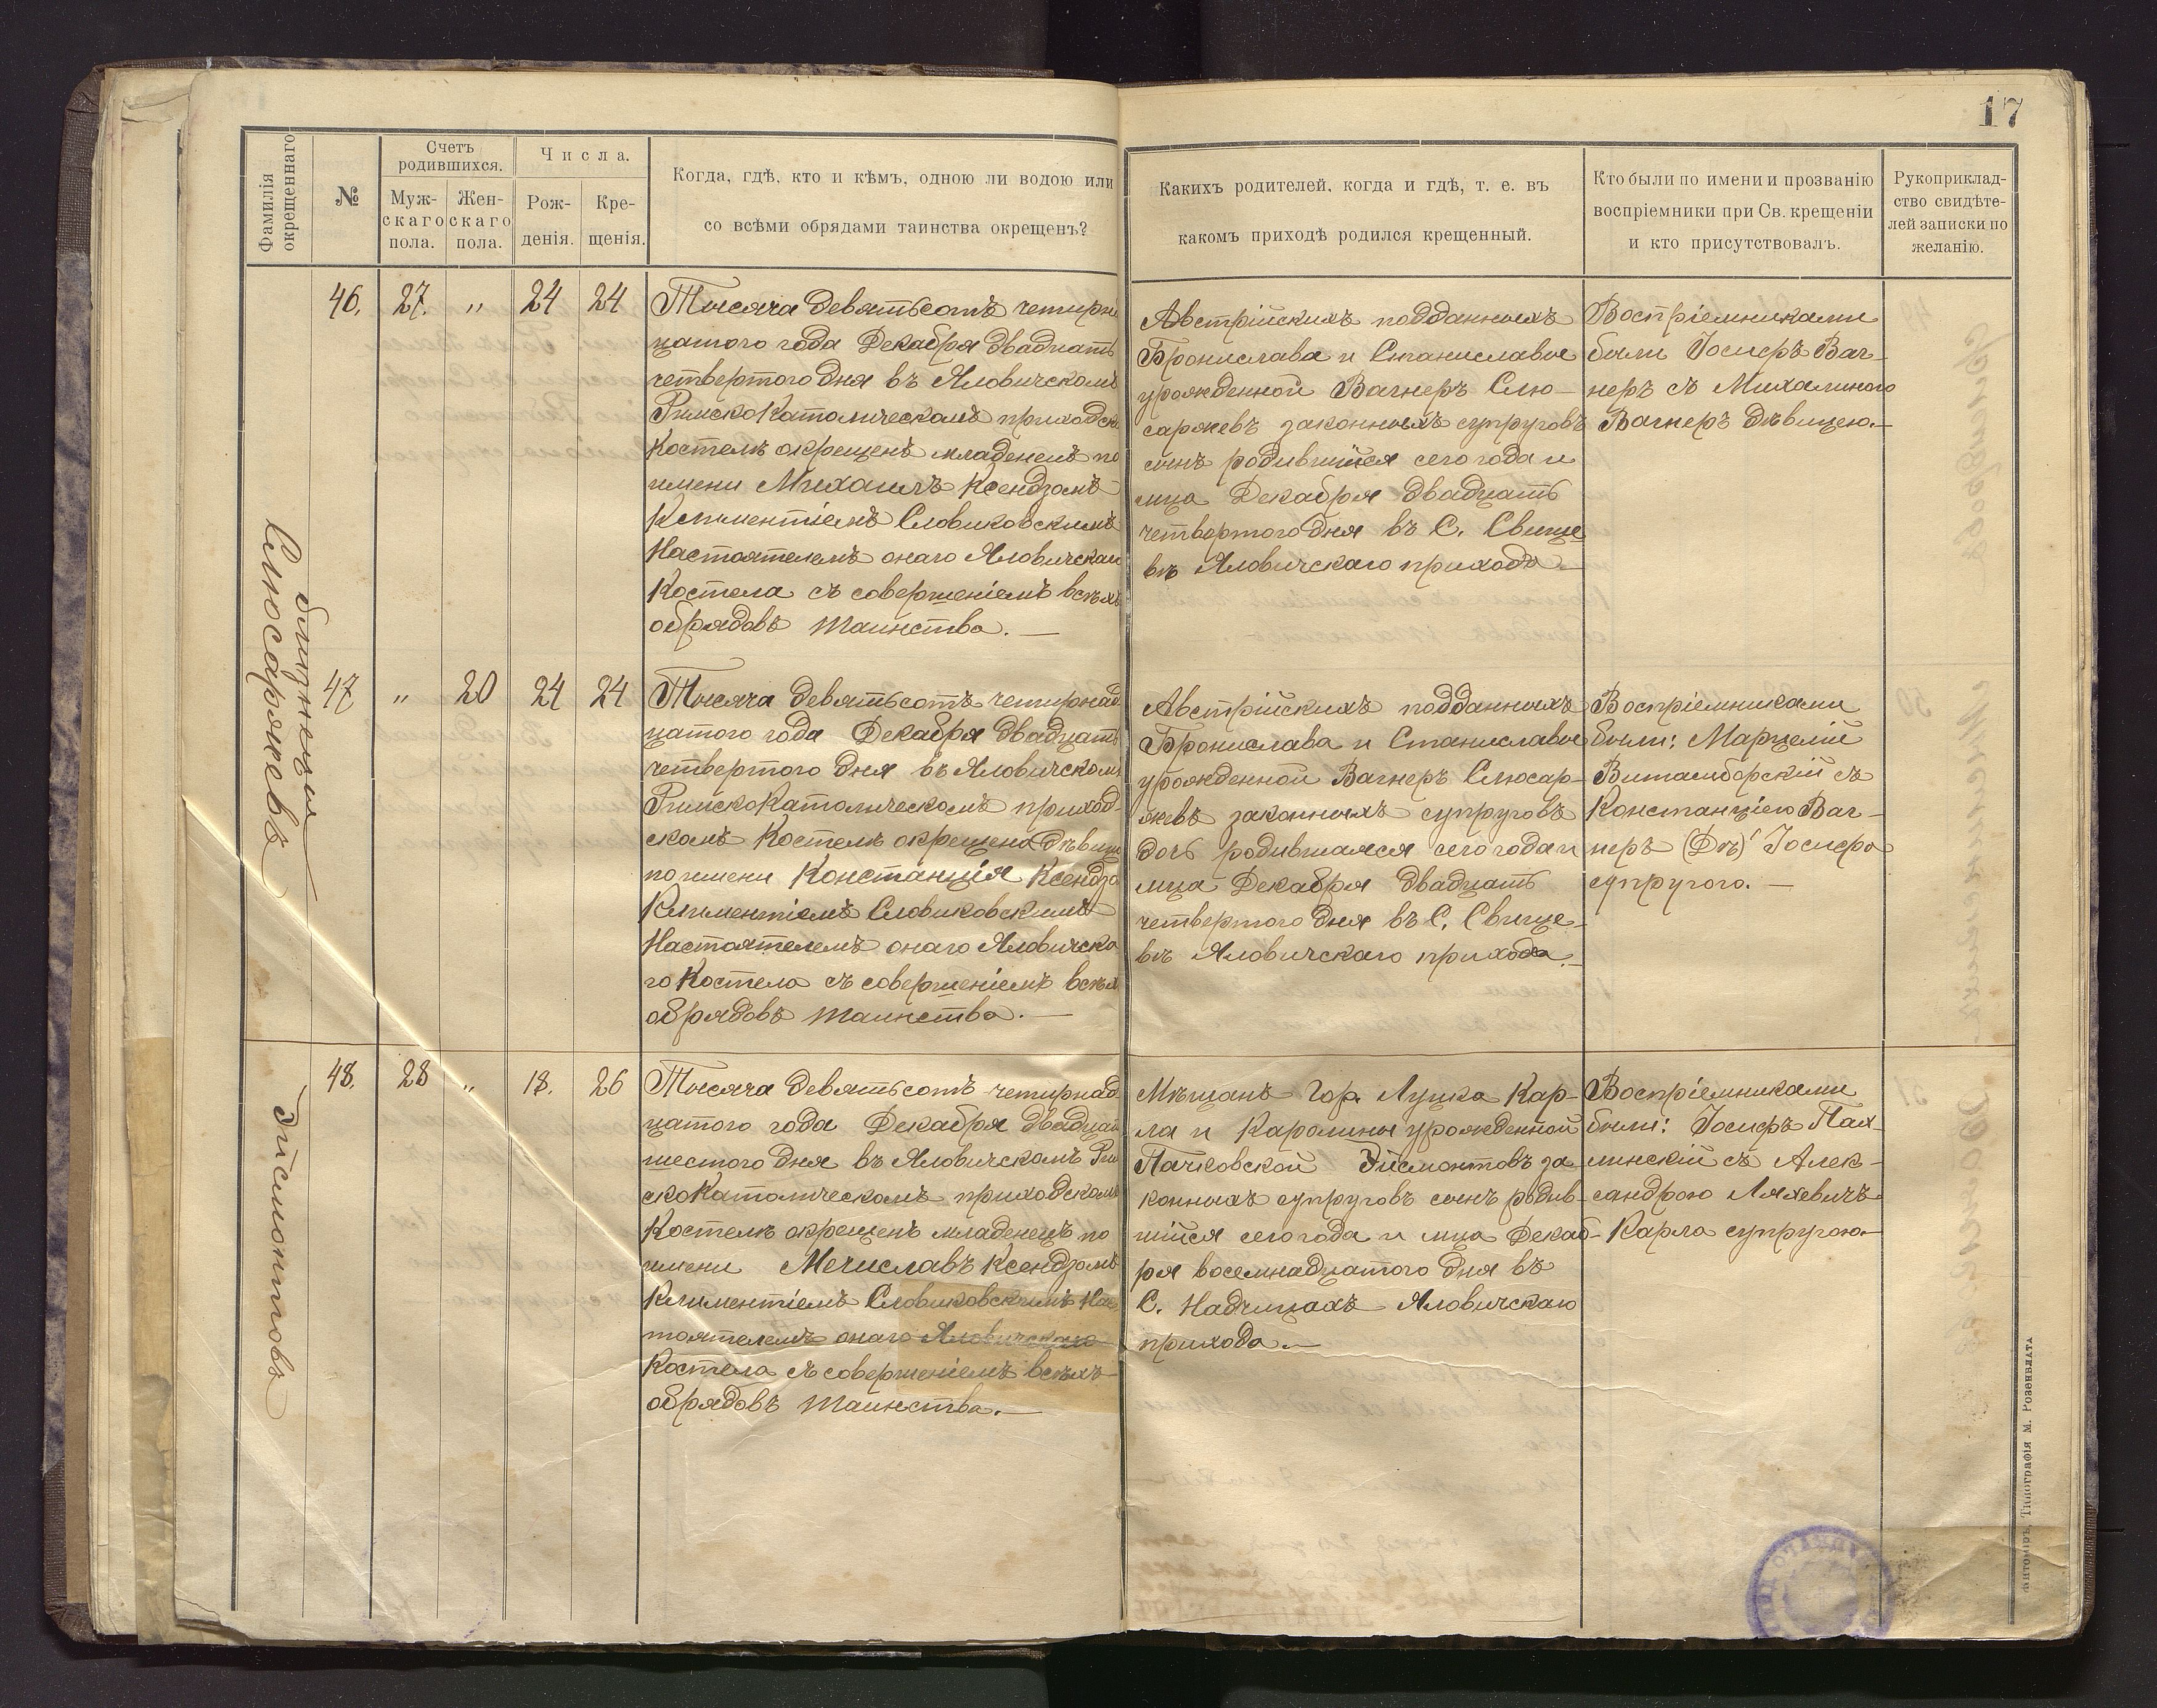 17
Фамилія окрещеннаго
№
Счетъ родившихся.
Муж-скаго пола.
Жен-скаго пола.
Числа.
Рож-денія.
Кре-щенія.
Когда, гдѣ, кто и кѣмъ, одною ли водою или
со всѣми обрядами таинства окрещенъ?
Какихъ родителей, когда и гдѣ, т. е. въ
какомъ приходѣ родился крещенный.
Кто были по имени и прозванію
воспріемники при Св. крещеніи
и кто присутствовалъ.
Рукоприклад-
ство свидѣте-
лей записки по
желанію.
Слюсаряжевъ
близнецы
46. 27. " 24 24
Тысяча девятьсотъ четырн
цатого года Декабря двадцать
четвертого дня въ Яловичскомъ
Римскокатолическомъ приходск
Костелѣ окрещенъ младенецъ по
имени Михаилъ Ксендзомъ
Климентіемъ Словиковскимъ
Настоятелемъ онаго Яловичскаго
Костела съ совершеніемъ всѣхъ
обрядовъ таинства. —
Австрійскихъ подданныхъ
Бронислава и Станиславы
урожденной Вагнеръ Слю-
саряжевъ законныхъ супруговъ
сынъ родившійся сего года и
мца Декабря двадцать
четвертого дня въ С. Свище
вѣ Яловичскаго прихода —
Воспріемниками
были Іосифъ Ваг-
неръ съ Михалиного
Вагнеръ дѣвицею.—
47 " 20 24 24
Тысяча девятьсотъ четырнад
цатого года Декабря двадцать
четвертого дня въ Яловичскомъ
Римскокатолическомъ приход-
скомъ Костелѣ окрещена дѣвица
по имени Констанція Ксендзо
Климентіемъ Словиковскимъ
Настоятелемъ онаго Яловичска
го Костела съ совершеніемъ всѣхъ
обрядовъ таинства. —
Австрійскихъ подданныхъ
Бронислава и Станиславы
урожденной Вагнеръ Слюсар-
яжевъ законныхъ супруговъ
дочь родившаяся сего года и
мца Декабря двадцать
четвертого дня въ С. Свище-
вѣ Яловичскаго прихода.—
Воспріемниками
были: Марцелій
Виташборскій съ
Констанціею Ваг-
неръ (Двѣ) Іосифа
супругого. —
Эйсмонтовъ
48. 28 " 18. 26
Тысяча девятьсотъ четырнад
цатого года Декабря двадцать
шестого дня въ Яловичскомъ Рим
скокатолическомъ приходскомъ
Костелѣ окрещенъ младенецъ по
имени Мечиславъ Ксендзомъ
Климентіемъ Словиковскимъ Нас
тоятелемъ онаго Яловичскаго
Костела съ совершеніемъ всѣхъ
обрядовъ таинства. —
Мѣщанъ Гор. Луцка Кар-
ла и Каролины урожденной
Пачковской Эйсмонтовъ за
конныхъ супруговъ сынъ родив-
шійся сего года и мца Декаб-
ря восемнадцатого дня въ
С. Надчицахъ Яловичскаго
прихода. —
Воспріемниками
были: Іосифъ Пах-
линскій съ Алек-
сандрою Ляхевичъ
Карла супругою—
Житоміръ, Типографія М. Розенблата